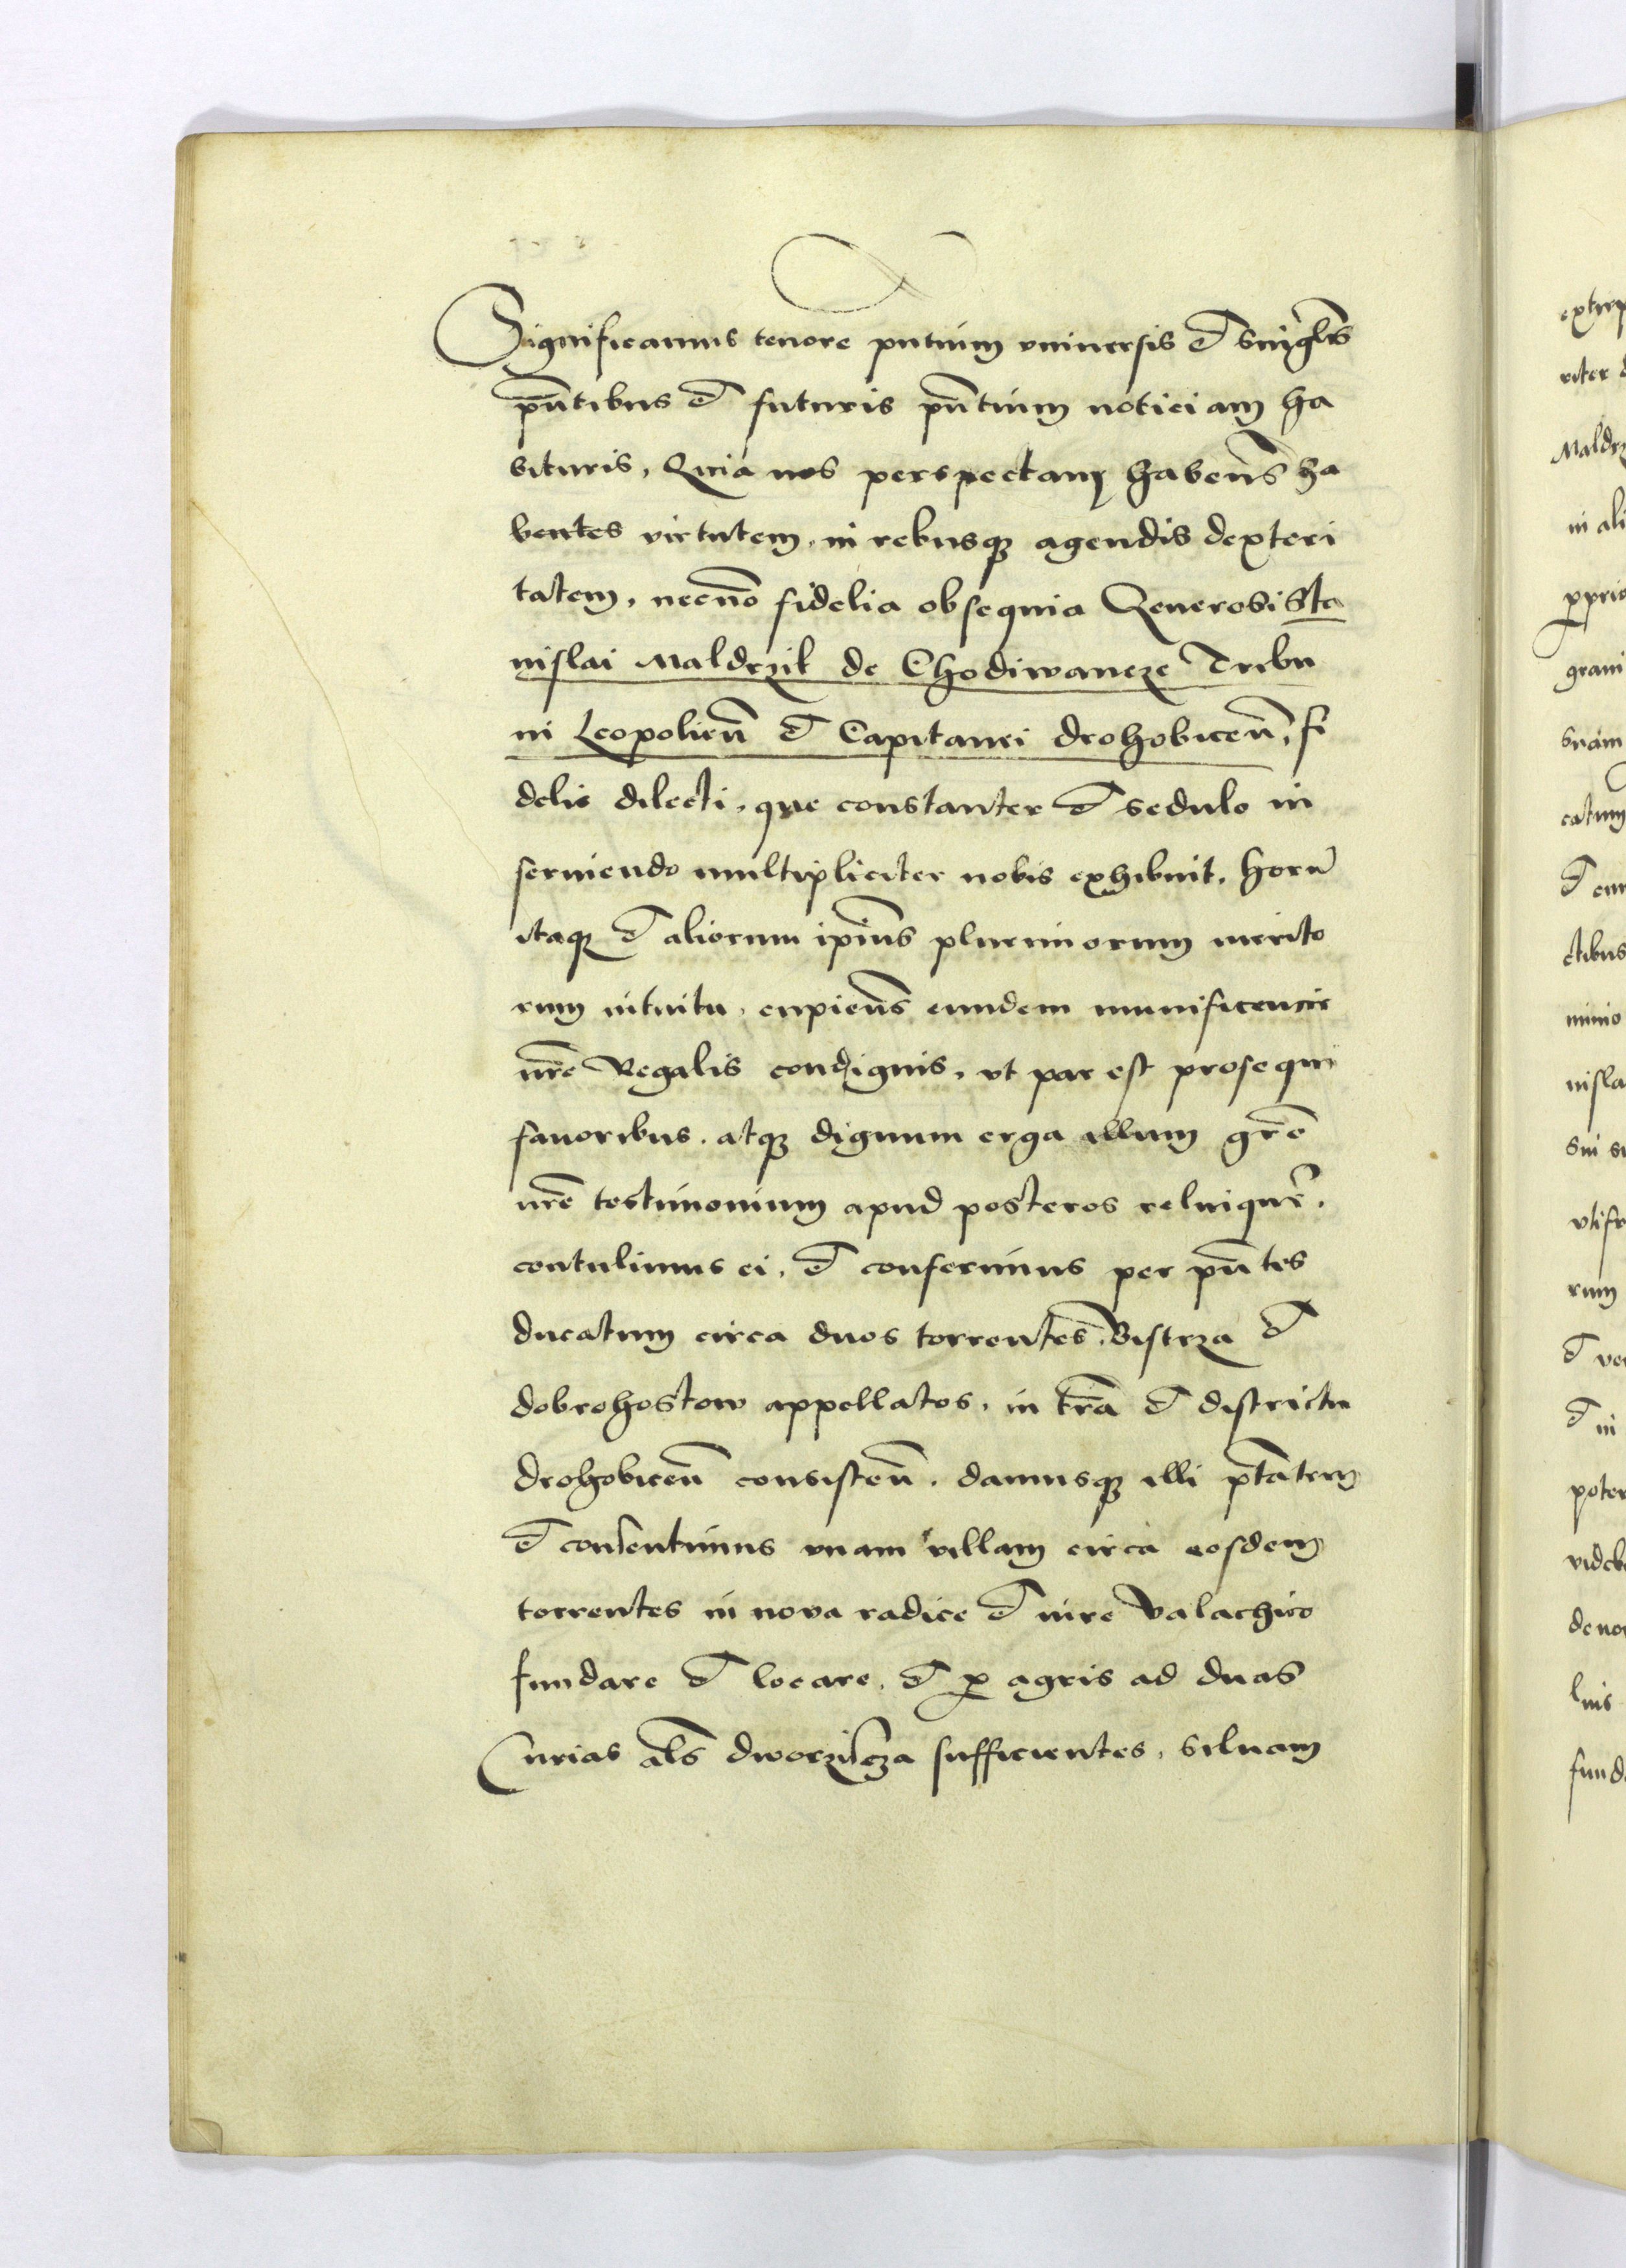 Significamus tenore pntium vniuersis et singlis
pn̄tibus et futuris pn̄tium noticiam ha
bituris, Quia nos perspectam haben̄s ha
bentes virtutem, in rebusq̨ agendis dexteri
tatem, necnō fidelia obsequia Generosi Sta
nislai Maldrzik de Chodiwancze Tribu
ni Leopolien̄ et Capitanei drohobicen̄, fi
delis dilecti, que constanter et sedulo in
seruiendo multipliciter nobis exhibuit, horū
itaq̨ et aliorum ip̄ius plurimorum merito
rum intuitu, cupien̄s eundem munificencie
nr̄e Regalis condignis, vt par est prosequi
fauoribus, atq̨ dignum erga illum gr̄e
nr̄e testimonium apud posteros relinquer̄,
contulimus ei, et conferimus per pn̄tes
ducatum circa duos torrentes, Bistrza et
dobrohostow appellatos, in tr̄a et districtu
drohobicen̄ consisten̄, damusq̨ illi ptātem
et consentimus vnam villam circa eosdem
torrentes in nova radice et iure Valachico
fundare et locare, et ꝑ agris ad duas
Curias als̄ dworzyscza sufficientes, siluam
extirp
riter
Maldrz
in ali
ꝑprio
grani
suam
catum
et cum
ctibus
minio
nisla
sui su
vtifr
rum
et ve
et in
poter
videb
de no
luis
fund